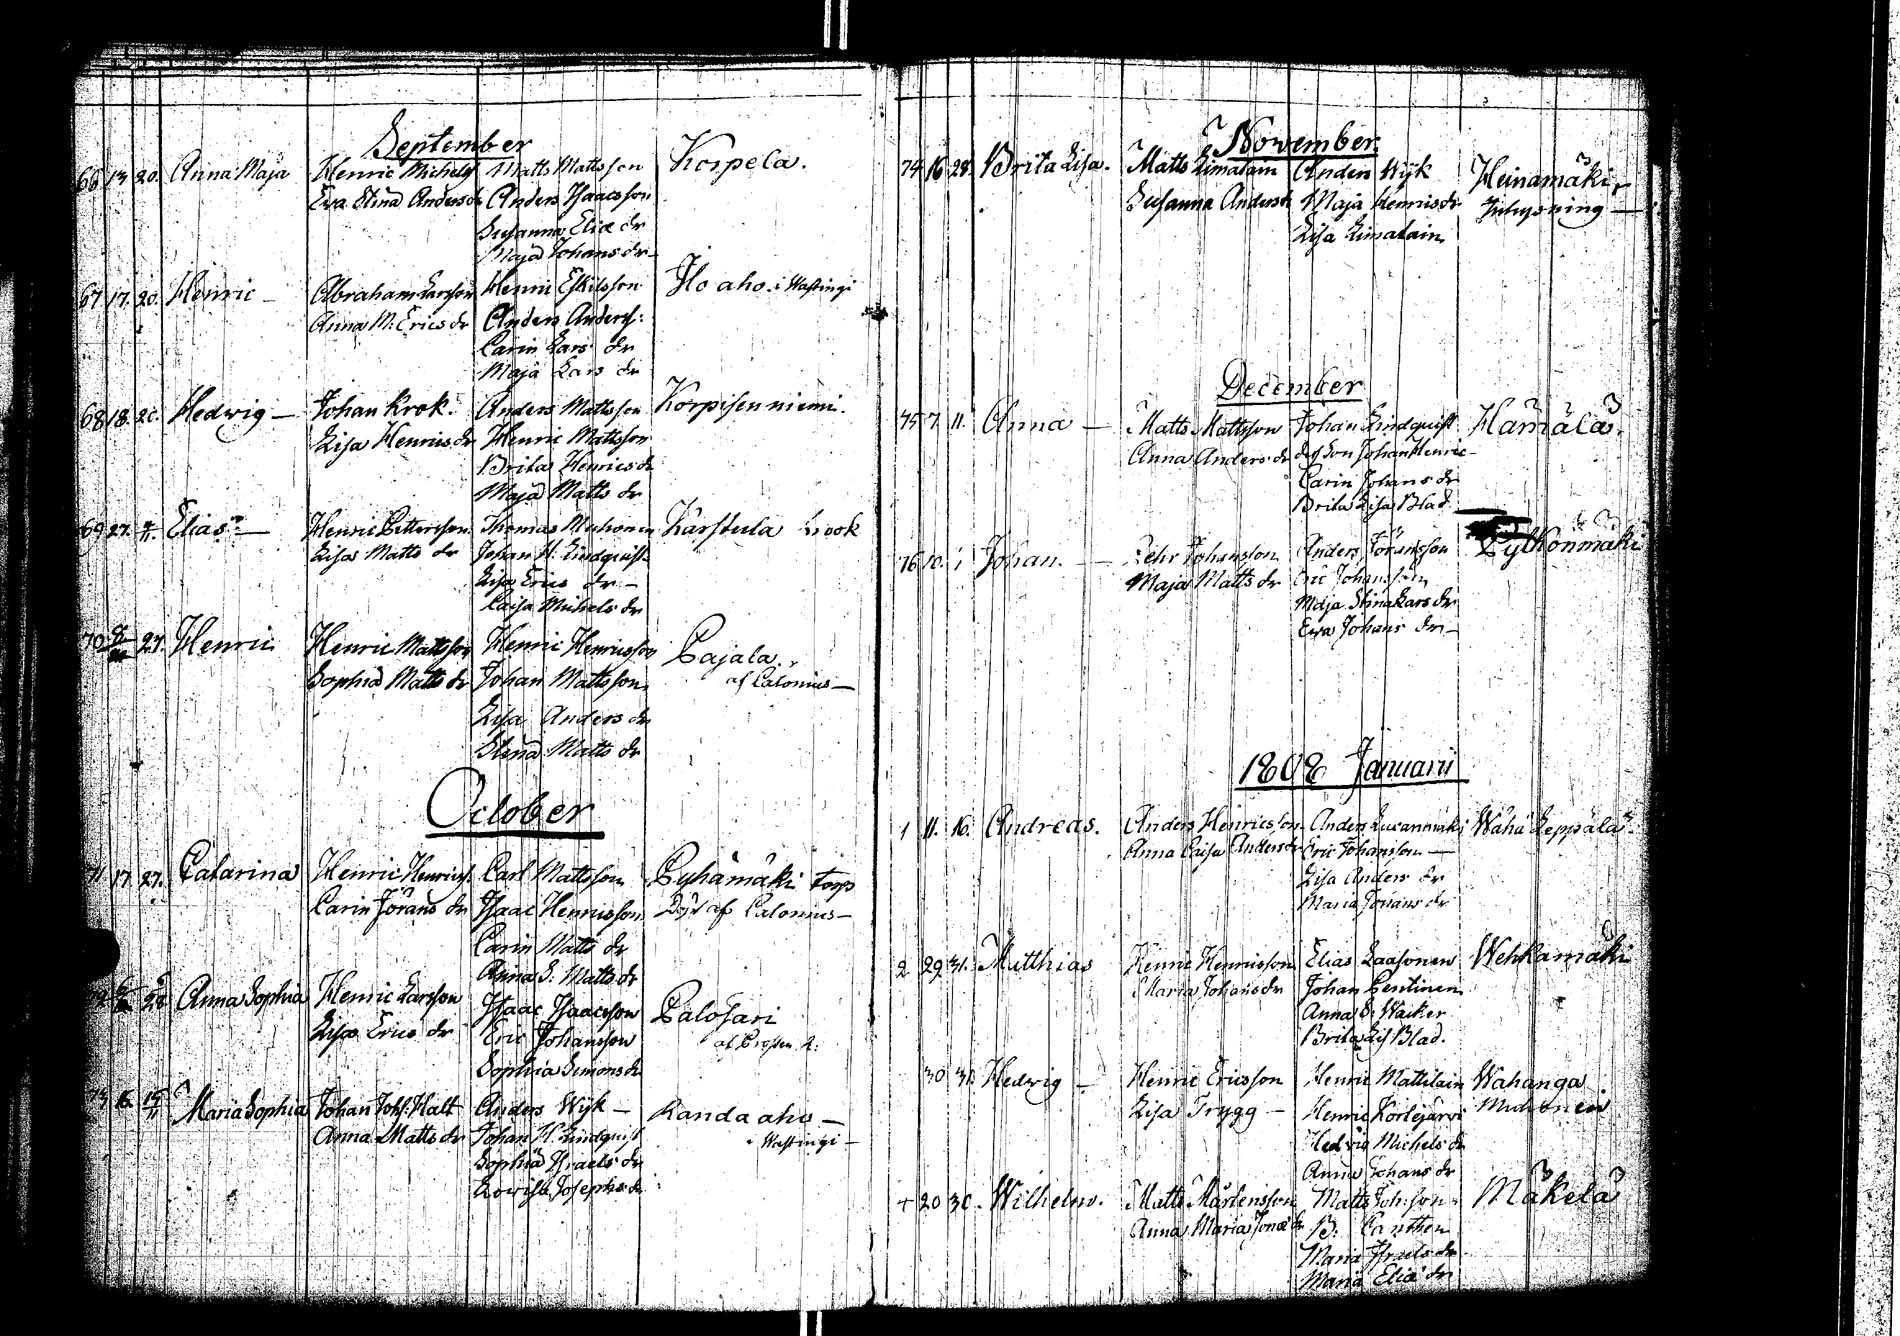 September
66 13 20. Anna Maja Henric Michelss Matts Mattsson Korpela.
Eva Stina Andersdr Anders Isaacsson
Susanna Eliæ dr
Maja Johans dr
67 17. 20. Henric Abraham Larsson Henric Eskilsson Ilo aho. i Wastingi
Anna M: Erics dr Anders Anderss:
Carin Lars dr
Maja Lars dr
68 18. 20. Hedwig Johan Krok. Anders Mattsson Korpisenniemi.
Lisa Henrics dr Henric Mattsson
Brita Henrics dr
Maja Matts dr
69 27. Elias Henric Pettersson Thomas Muhonen Karstula Krook
Lisa Matts dr Johan H. Lindquist
Lisa Erics dr
Caisa Michels dr
70 27. Henric Henric Mattsson Henric Henricsson Pajala.
Sophia Matts dr Johan Mattsson af Calonius
Lisa Anders dr
Stina Matts dr
October
71 17. 27. Catarina Henric Henricss. Carl Mattsson Pyhämäki torp
Carin Jörans dr Isaac Henricsson af Calonius
Carin Matts dr
Anna S. Matts dr
28 Anna Sophia Henric Larsson Isaac Isaacsson Palosari
Lisa Erics dr Eric Johansson
Sophia Simons dr
73 16. 15/11 Maria Sophia Johan Johs: Halt Anders Wijk Randa aho
Anna Matts dr Johan H. Lindquist i Wastingi
Sophia Israels dr
Lowisa Josephs dr
November.
74 16 28. Brita Lisa. Matts Limatain Anders Wijk Heinamäki,
Susanna Andersdr Maja Henricsdr Inhysning
Lisa Limatain
December
75 7 11. Anna Matts Mattsson Johan Lindquist Hämälä.
Anna Anders dr dess Son Johan Henric
Carin Johans dr
Brita Lisa Blad
76 10. Johan. Pehr Johansson Anders Göransson Pylkönmäki
Maja Matts dr Eric Johansson
Maja Stina Lars dr
Ewa Johans dr
1808 Januarii
1 11. 16. Andreas. Anders Henricsson Anders Lucanmäki Wähä Leppälä.
Anna Caisa Andersdr Eric Johansson
Lisa Anders dr
Maria Jörans dr
2 29. 31. Matthias Henric Henricsson Elias Laasonen Wehkamäki
Maria Johans dr Johan Pentinen
Anna S. Waiker
Brita Lis Blad.
30 31. Hedwig Henric Ericsson Henric Mattilain Wahanga
Lisa Trygg Henric Kortejärvi Muhonen
Hedvig Michels dr
Anna Johans dr
+ 20 30. Wilhelm. Matts Mårtensson Matts Joh:son Mäkelä
Anna Maria Jonæ dr B: Canthen
Maria Israels dr
Maria Eliæ dr